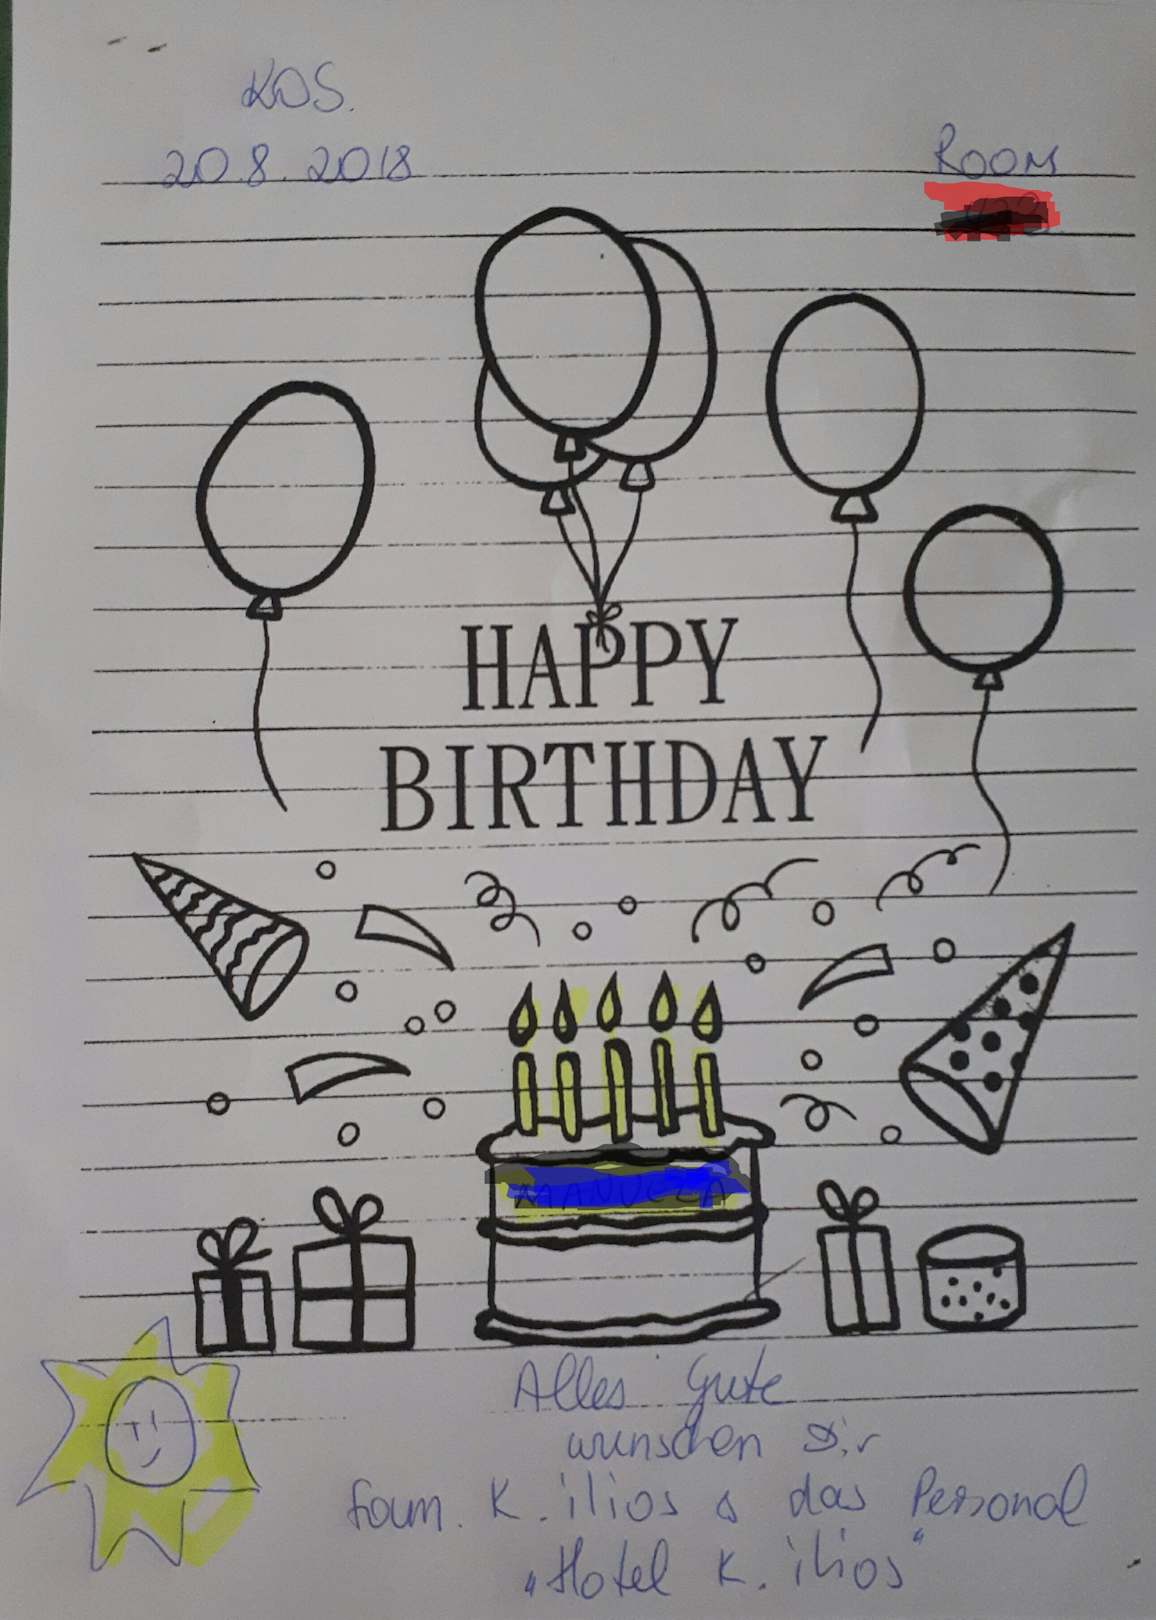 KOS.
20.8.2018
ROOM
HAPPY
BIRTHDAY
Alles Gute
wunschen Dir
fam. K. ilios & das Personal
"Hotel K. ilios"